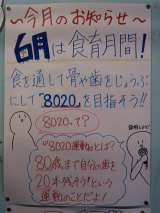 ～今月のお知らせ～
6月は食育月間!
食を通して骨や歯をじょうぶ
にして"8020"を目指そう!!
8020って?
"8020運動"とは?
80歳まで自分の歯を
20本残そう!という
運動のことだよ!